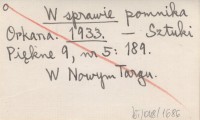 W sprawie pomnika
Orkana. 1933. — Sztuki
Piękne 9, nr 5: 189.
W Nowym Targu.